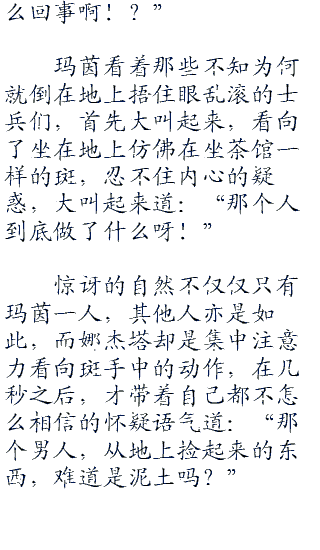 么回事啊！？”
玛茵看着那些不知为何
就倒在地上捂住眼乱滚的士
兵们，首先大叫起来，看向
了坐在地上仿佛在坐茶馆一
样的斑，忍不住内心的疑
惑，大叫起来道：“那个人
到底做了什么呀！”
惊讶的自然不仅仅只有
玛茵一人，其他人亦是如
此，而娜杰塔却是集中注意
力看向斑手中的动作，在几
秒之后，才带着自己都不怎
么相信的怀疑语气道：“那
个男人，从地上捡起来的东
西，难道是泥土吗？”